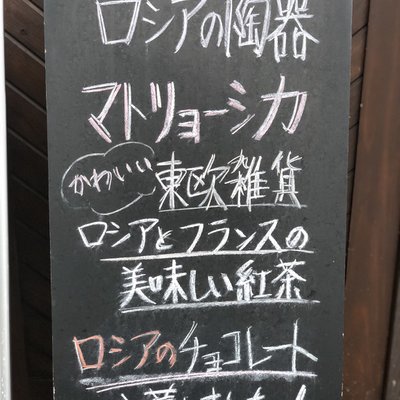 ロシアの陶器
マトリョーシカ
かわいい 東欧雑貨
ロシアとフランスの
美味しい紅茶
ロシアのチョコレート